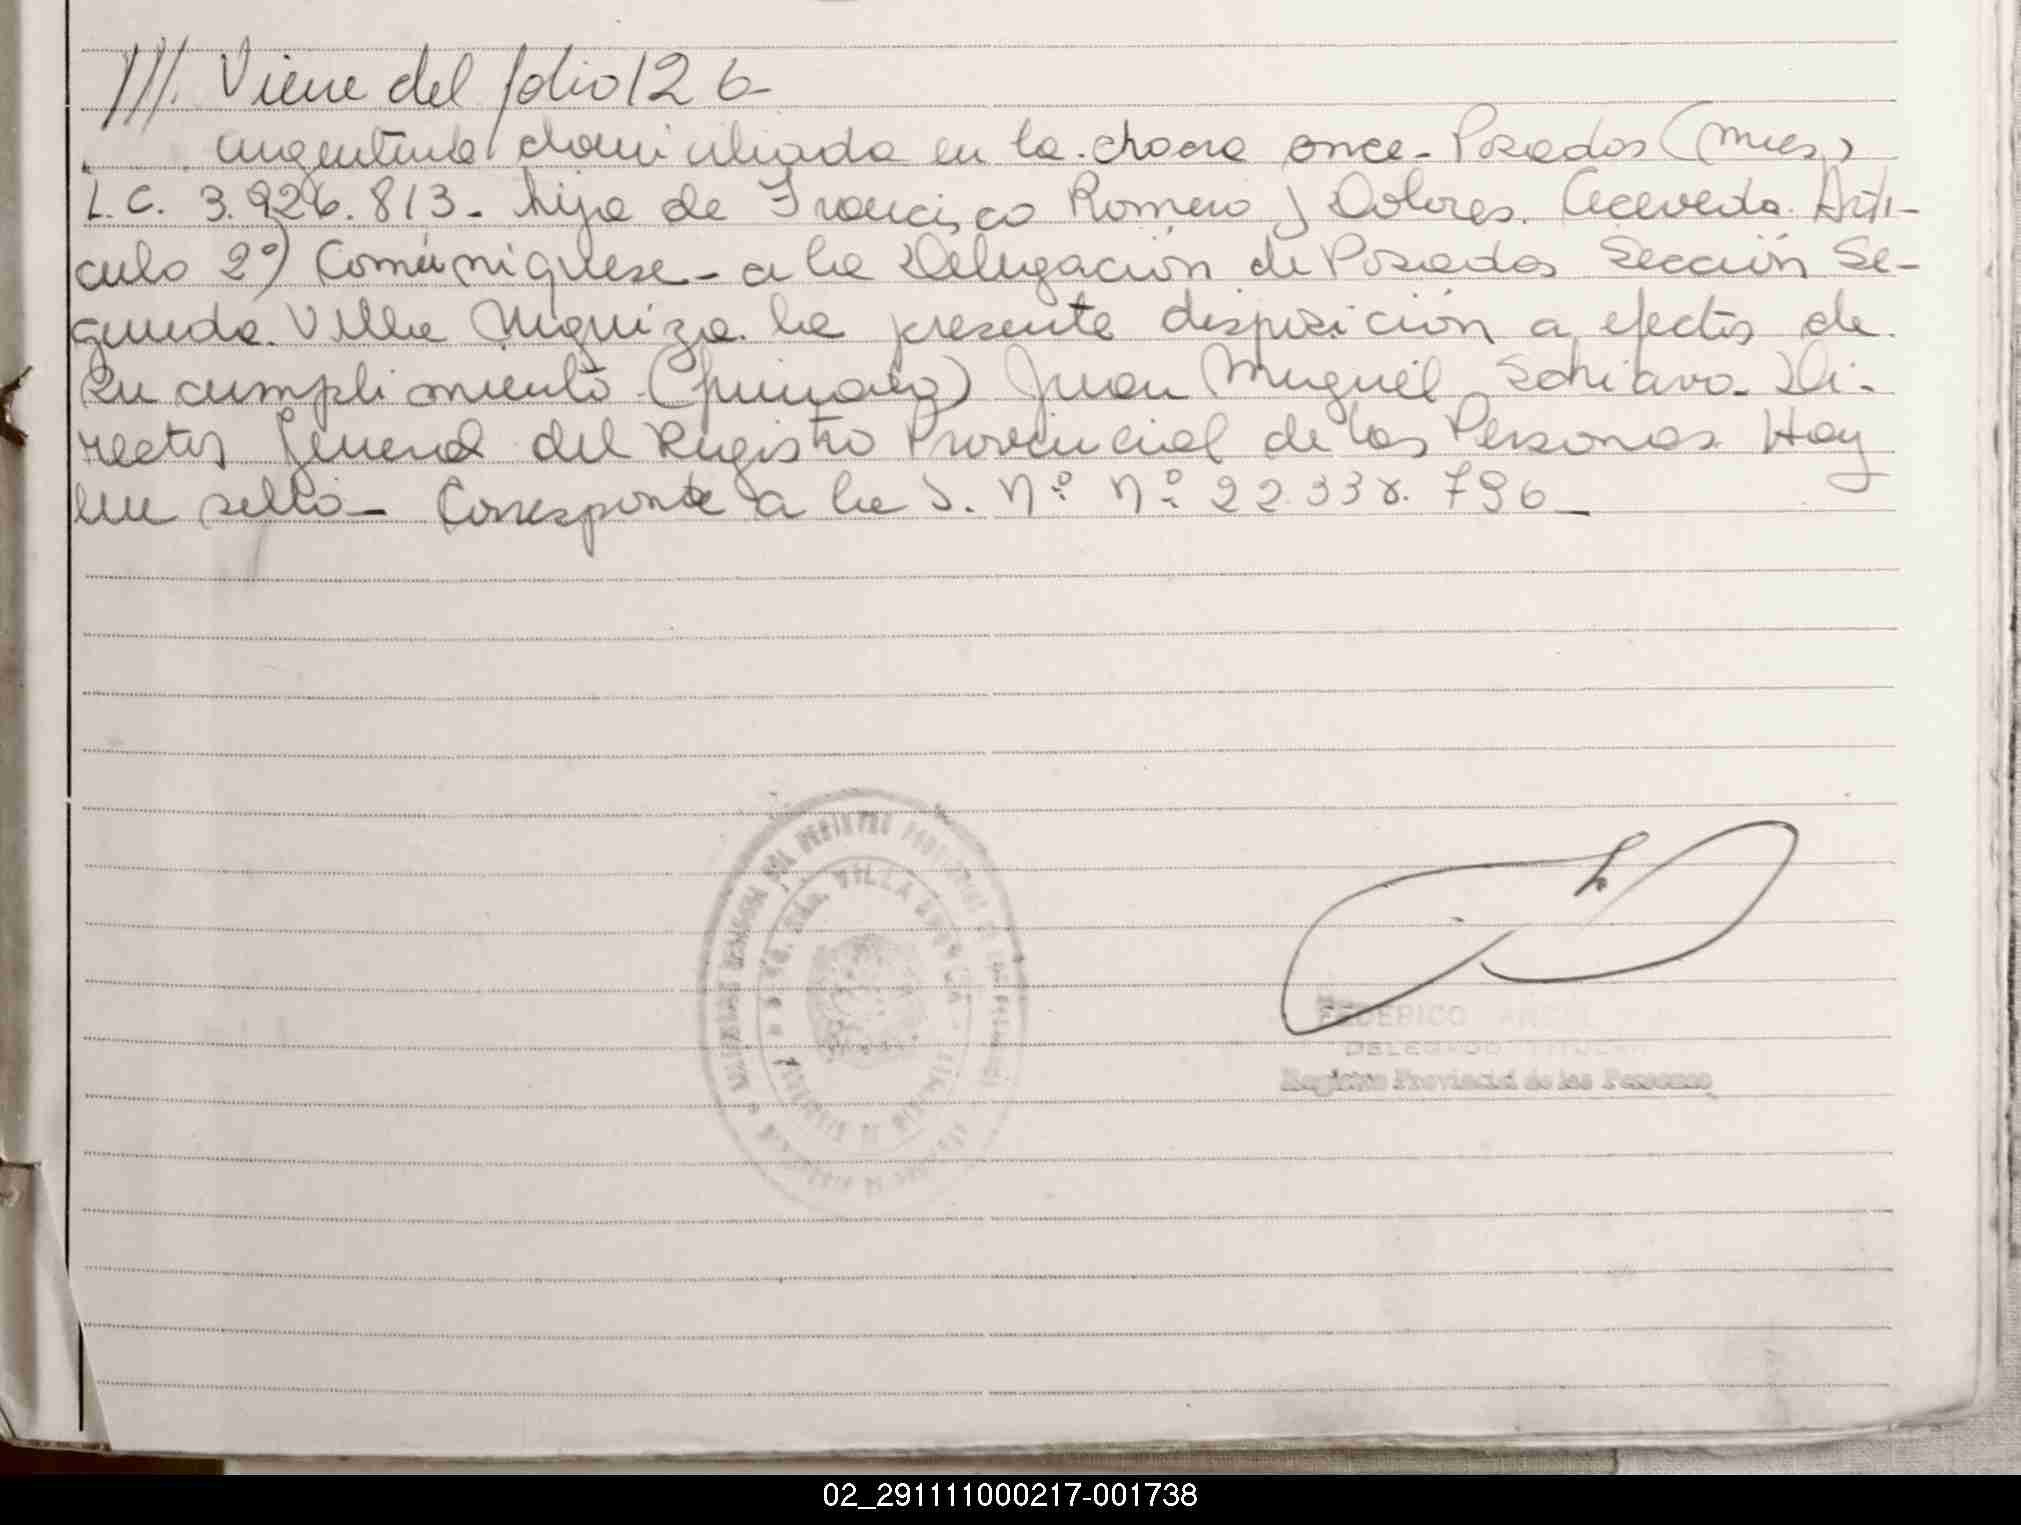 ///. Viene del folio 126-
argentina domiciliada en la chacra once - Posadas (Mnes)
L.C. 3.926.813 - hija de Francisco Romero y Dolores Acevedo. Artí-
culo 2º) Comuníquese - a la Delegación de Posadas Sección Se-
gunda. Villa Urquiza. la presente disposición a efectos de
su cumplimiento - (firmado) Juan Miguel Schiavo - Di-
rector General del Registro Provincial de las Personas. Hay
un sello - Corresponde a la S. Nº Nº 22.338.796 -
VILLA URQUIZA
FEDERICO
DELEGADO TITULAR
Registro Provincial de las Personas
02_291111000217-001738